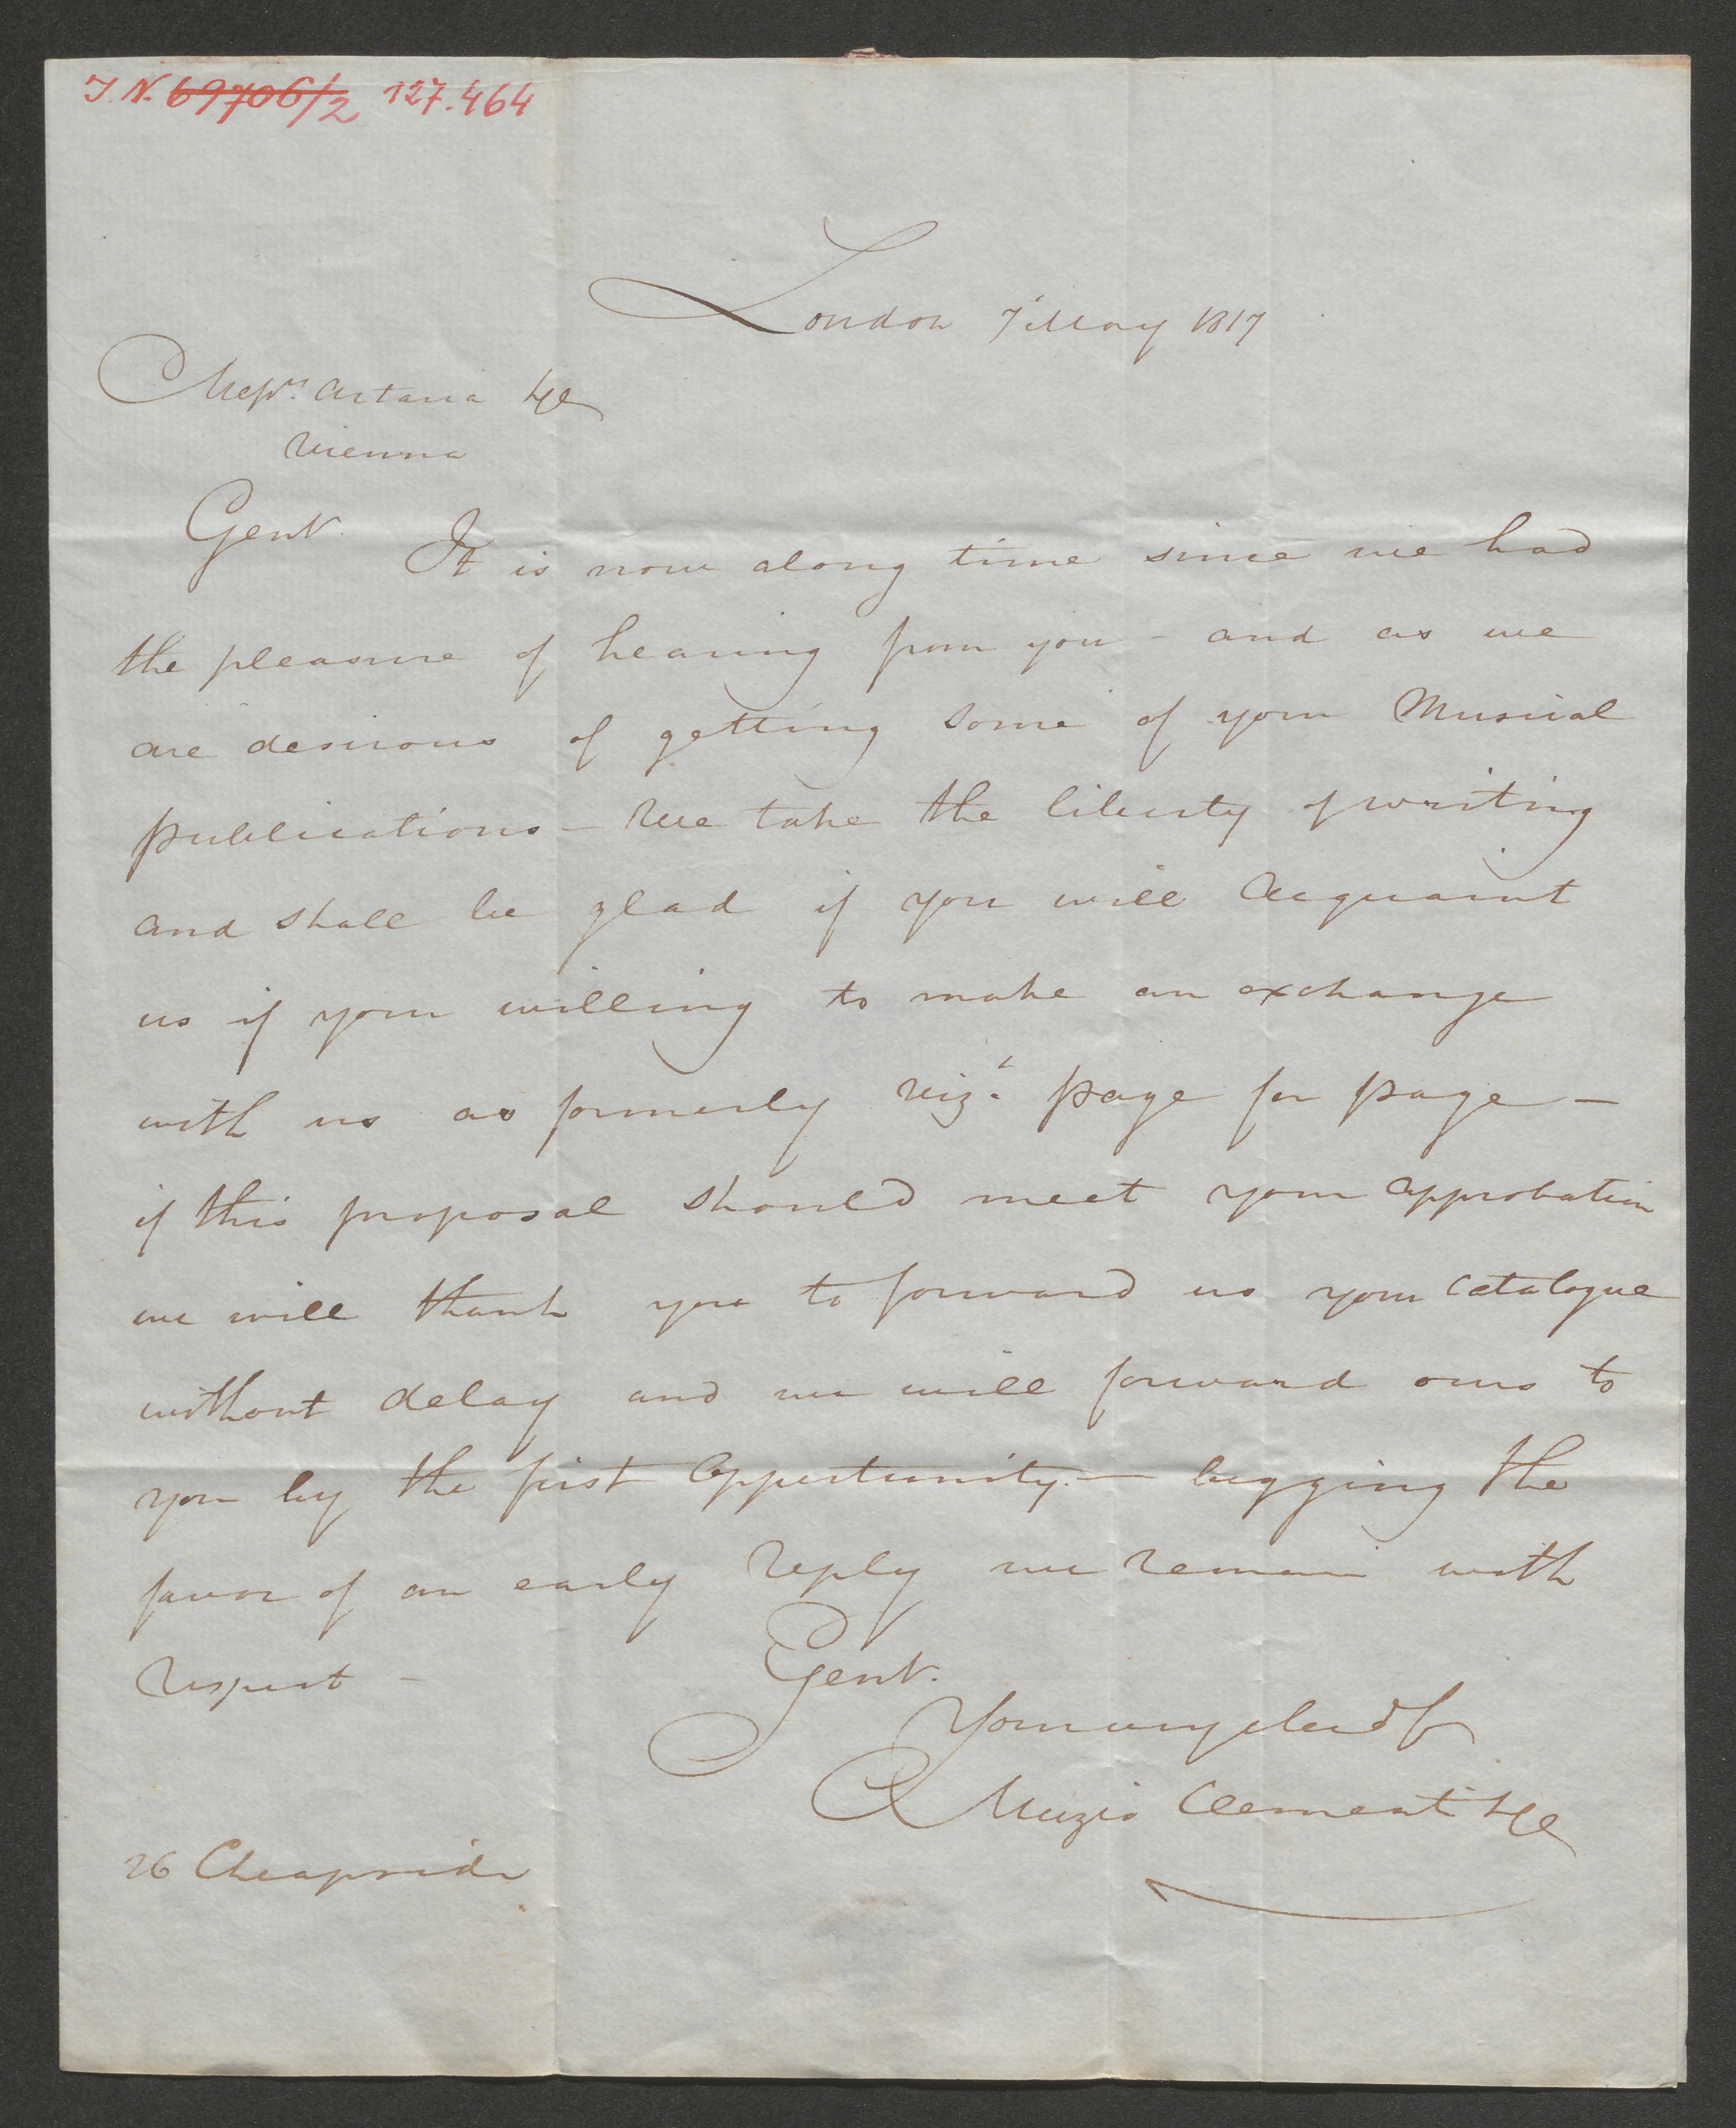 I. N. 69706/2 127.464
London 7 May 1817
Messrs. Artaria &Co
Vienna
Gent. It is now along time since we had
the pleasure of hearing from you - and as we
are desirous of getting some of your Musical
publications - We take the liberty of writing
and shall be glad if you will Acquaint
us if your willing to make an exchange
with us as formerly viz. page for page -
if this proposal should meet your approbation
we will thank you to forward us your Catalogue
without delay and we will forward ours to
you by the first Oppertunity. - begging the
favor of an early reply we remain with
respect - Gent.
Your very
Muzio Clementi &Co
26 Cheapside